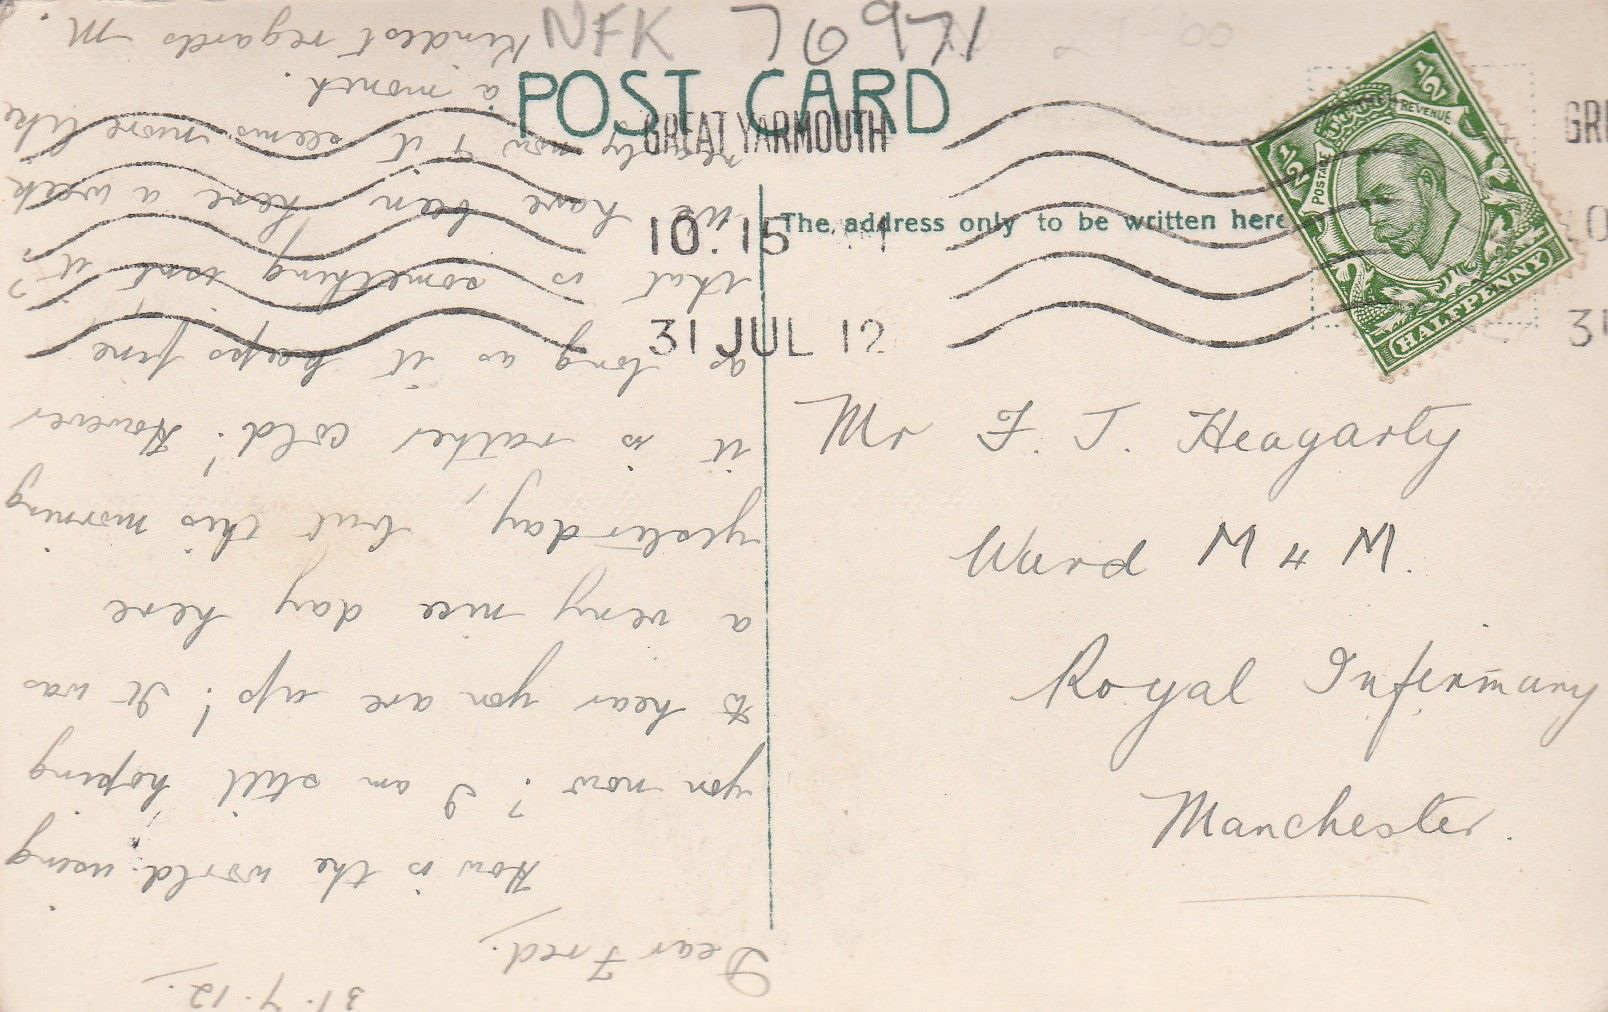 NFK 76971
POST CARD
GREAT YARMOUTH
10.15
31 JUL 12
The address only to be written here
POSTAGE
REVENUE
1/2
1/2
HALFPENNY
GRE
Mr F. J. Heagarty
Ward M & M.
Royal Infirmary
Manchester.
31.7.12.
Dear Fred.
How is the world using
you now? I am still hoping
to hear you are up! It was
a very nice day here
yesterday, but this morning
it is rather cold! However
as long as it keeps fine
that is something, isnt it?
we have been here a week
nearly now & it seems more like
a month.
Kindest regards M.